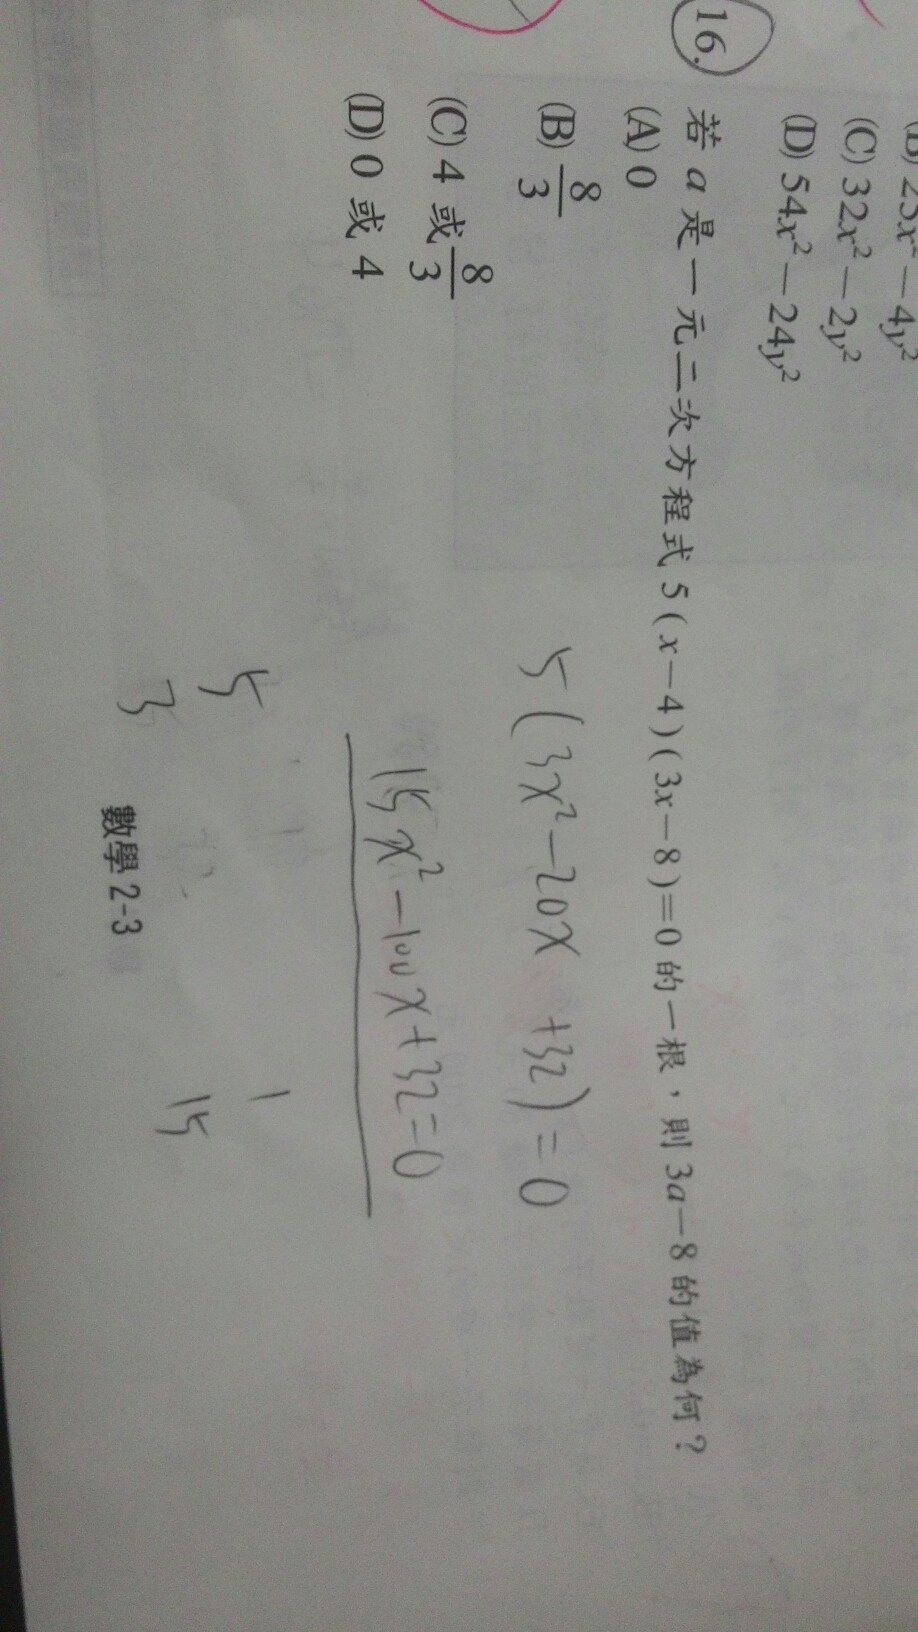 (B) 25x² － 4y²
(C) 32x² － 2y²
(D) 54x² － 24y²
16. 若 a 是一元二次方程式 5(x－4)(3x－8)=0 的一根，則 3a－8 的值為何？
(A) 0
(B) 8/3
(C) 4 或 8/3
(D) 0 或 4
5(3x²－20x +32)=0
15x²－100x+32=0
5
3
1
15
數學 2-3